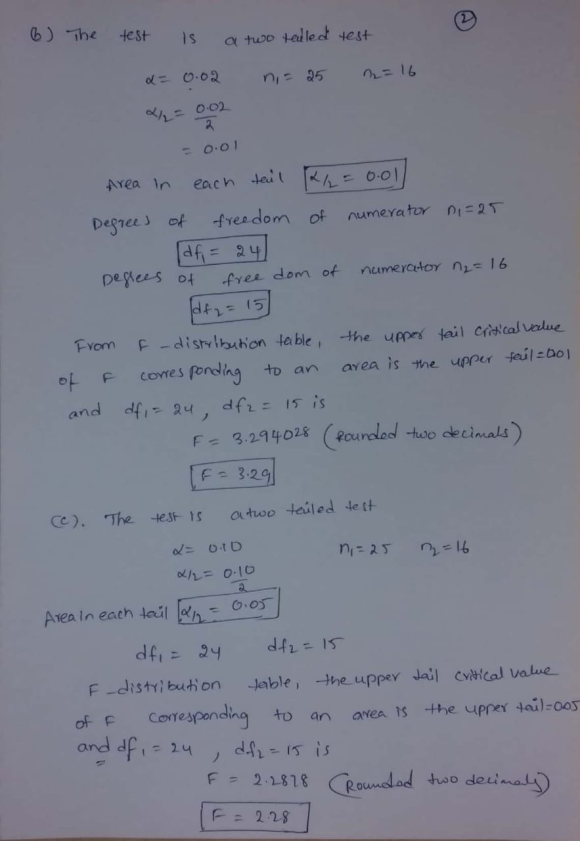 ②
b) The test is a two tailed test
α = 0.02 n₁ = 25 n₂ = 16
α/2 = 0.02/2
= 0.01
Area in each tail α/2 = 0.01
Degrees of freedom of numerator n₁ = 25
df₁ = 24
Degrees of free dom of numerator n₂ = 16
df₂ = 15
From F-distribution table, the upper tail critical value
of F corresponding to an area is the upper tail = 0.01
and df₁ = 24, df₂ = 15 is
F = 3.294028 (Rounded two decimals)
F = 3.29
(c). The test is a two tailed test
α = 0.10 n₁ = 25 n₂ = 16
α/2 = 0.10/2
Area in each tail α/2 = 0.05
df₁ = 24 df₂ = 15
F-distribution table, the upper tail critical value
of F corresponding to an area is the upper tail = 0.05
and df₁ = 24, df₂ = 15 is
F = 2.2878 (Rounded two decimals)
F = 2.28